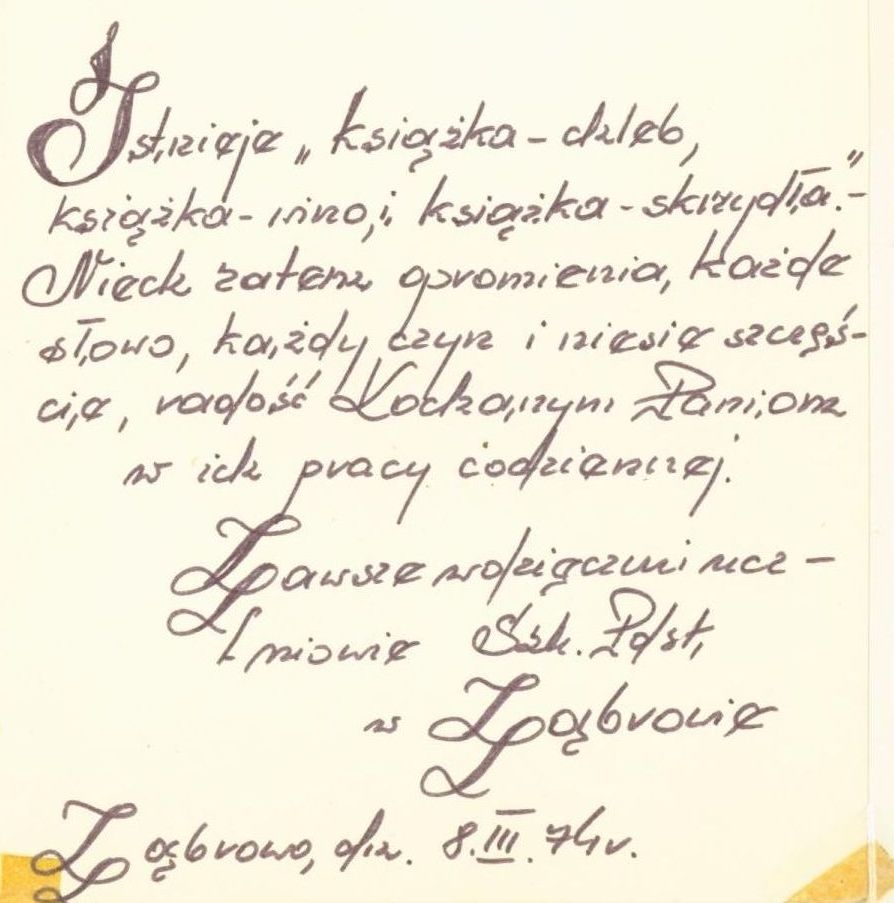 Istnieje „książka-chleb,
książka-wino, i książka-skrzydła."-
Niech zatem opromienia, każde
słowo, każdy czyn i niesie szczęś-
cie, radość Kochanym Paniom
w ich pracy codziennej.
Zawsze wdzięczni ucz-
niowie Szk. Pdst,
w Ząbrowie
Ząbrowo, dn. 8.III.74r.